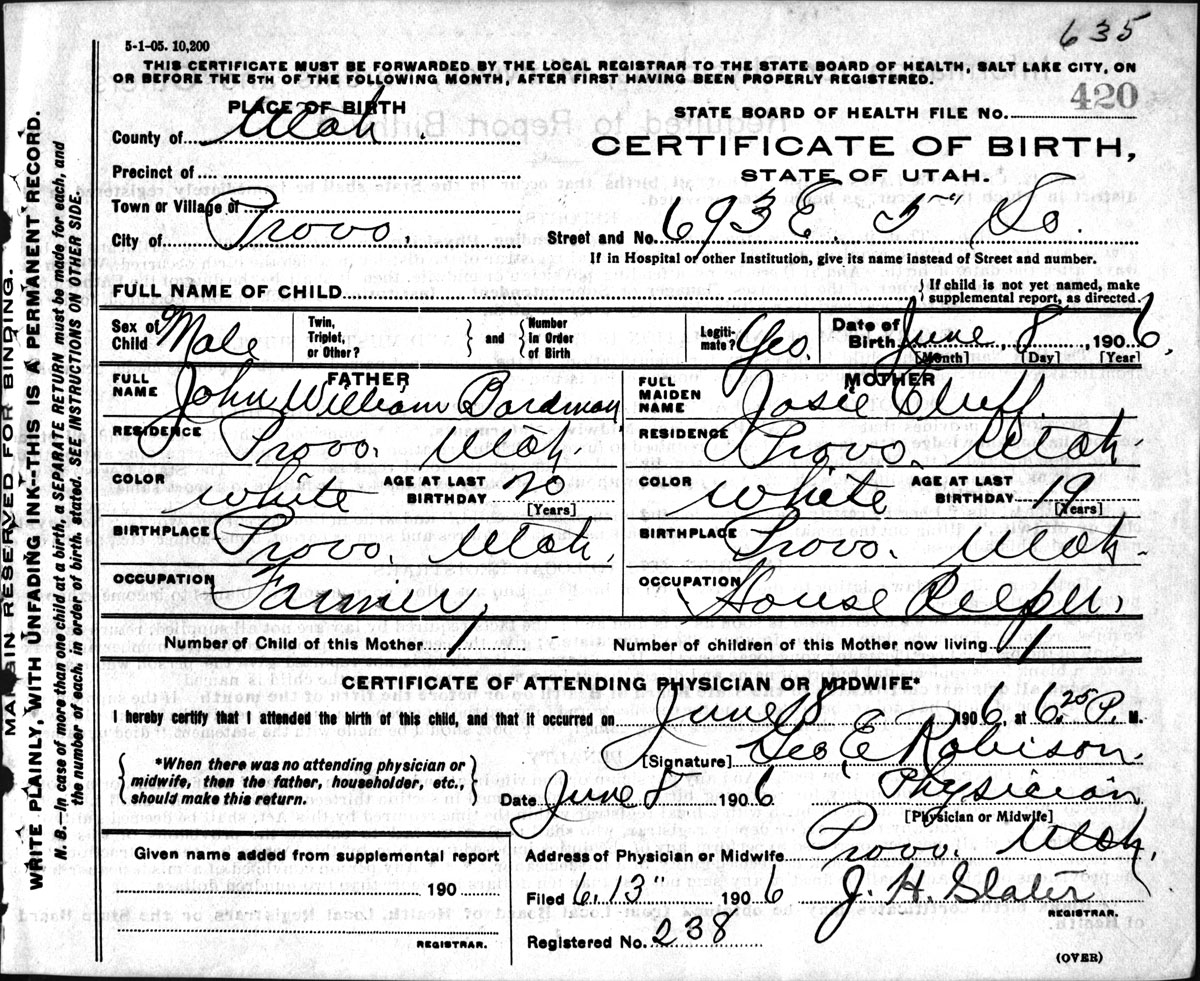 635
5-1-05. 10,200
THIS CERTIFICATE MUST BE FORWARDED BY THE LOCAL REGISTRAR TO THE STATE BOARD OF HEALTH, SALT LAKE CITY, ON
OR BEFORE THE 5TH OF THE FOLLOWING MONTH, AFTER FIRST HAVING BEEN PROPERLY REGISTERED.
420
PLACE OF BIRTH
STATE BOARD OF HEALTH FILE No.
County of Utah.
CERTIFICATE OF BIRTH,
STATE OF UTAH.
Precinct of
Town or Village of
City of Provo,
Street and No. 693 E. 5" So.
If in Hospital or other Institution, give its name instead of Street and number.
FULL NAME OF CHILD
If child is not yet named, make
supplemental report, as directed.
Sex of Child Male
Twin, Triplet, or Other?
and
Number in Order of Birth
Legiti-mate? Yes.
Date of Birth June 8, 1906.
[Month] [Day] [Year]
FATHER
FULL NAME John William Boardman
RESIDENCE Provo. Utah.
COLOR White AGE AT LAST BIRTHDAY 20 [Years]
BIRTHPLACE Provo. Utah.
OCCUPATION Farmer,
MOTHER
FULL MAIDEN NAME Josie Cluff.
RESIDENCE Provo. Utah
COLOR White AGE AT LAST BIRTHDAY 19 [Years]
BIRTHPLACE Provo. Utah.
OCCUPATION House
Number of Child of this Mother 1
Number of children of this Mother now living 1
CERTIFICATE OF ATTENDING PHYSICIAN OR MIDWIFE*
I hereby certify that I attended the birth of this child, and that it occurred on June 8 1906, at 6.25 P. M.
*When there was no attending physician or
midwife, then the father, householder, etc.,
should make this return.
[Signature] Geo. E. Robison.
Date June 8 1906 Physician
[Physician or Midwife]
Given name added from supplemental report
190
REGISTRAR.
Address of Physician or Midwife Provo. Utah.
Filed 6. 13" 1906 J. H. Slater
REGISTRAR.
Registered No. 238
(OVER)
MARGIN RESERVED FOR BINDING.
WRITE PLAINLY, WITH UNFADING INK--THIS IS A PERMANENT RECORD.
N. B.--In case of more than one child at a birth, a SEPARATE RETURN must be made for each, and
the number of each, in order of birth, stated. SEE INSTRUCTIONS ON OTHER SIDE.